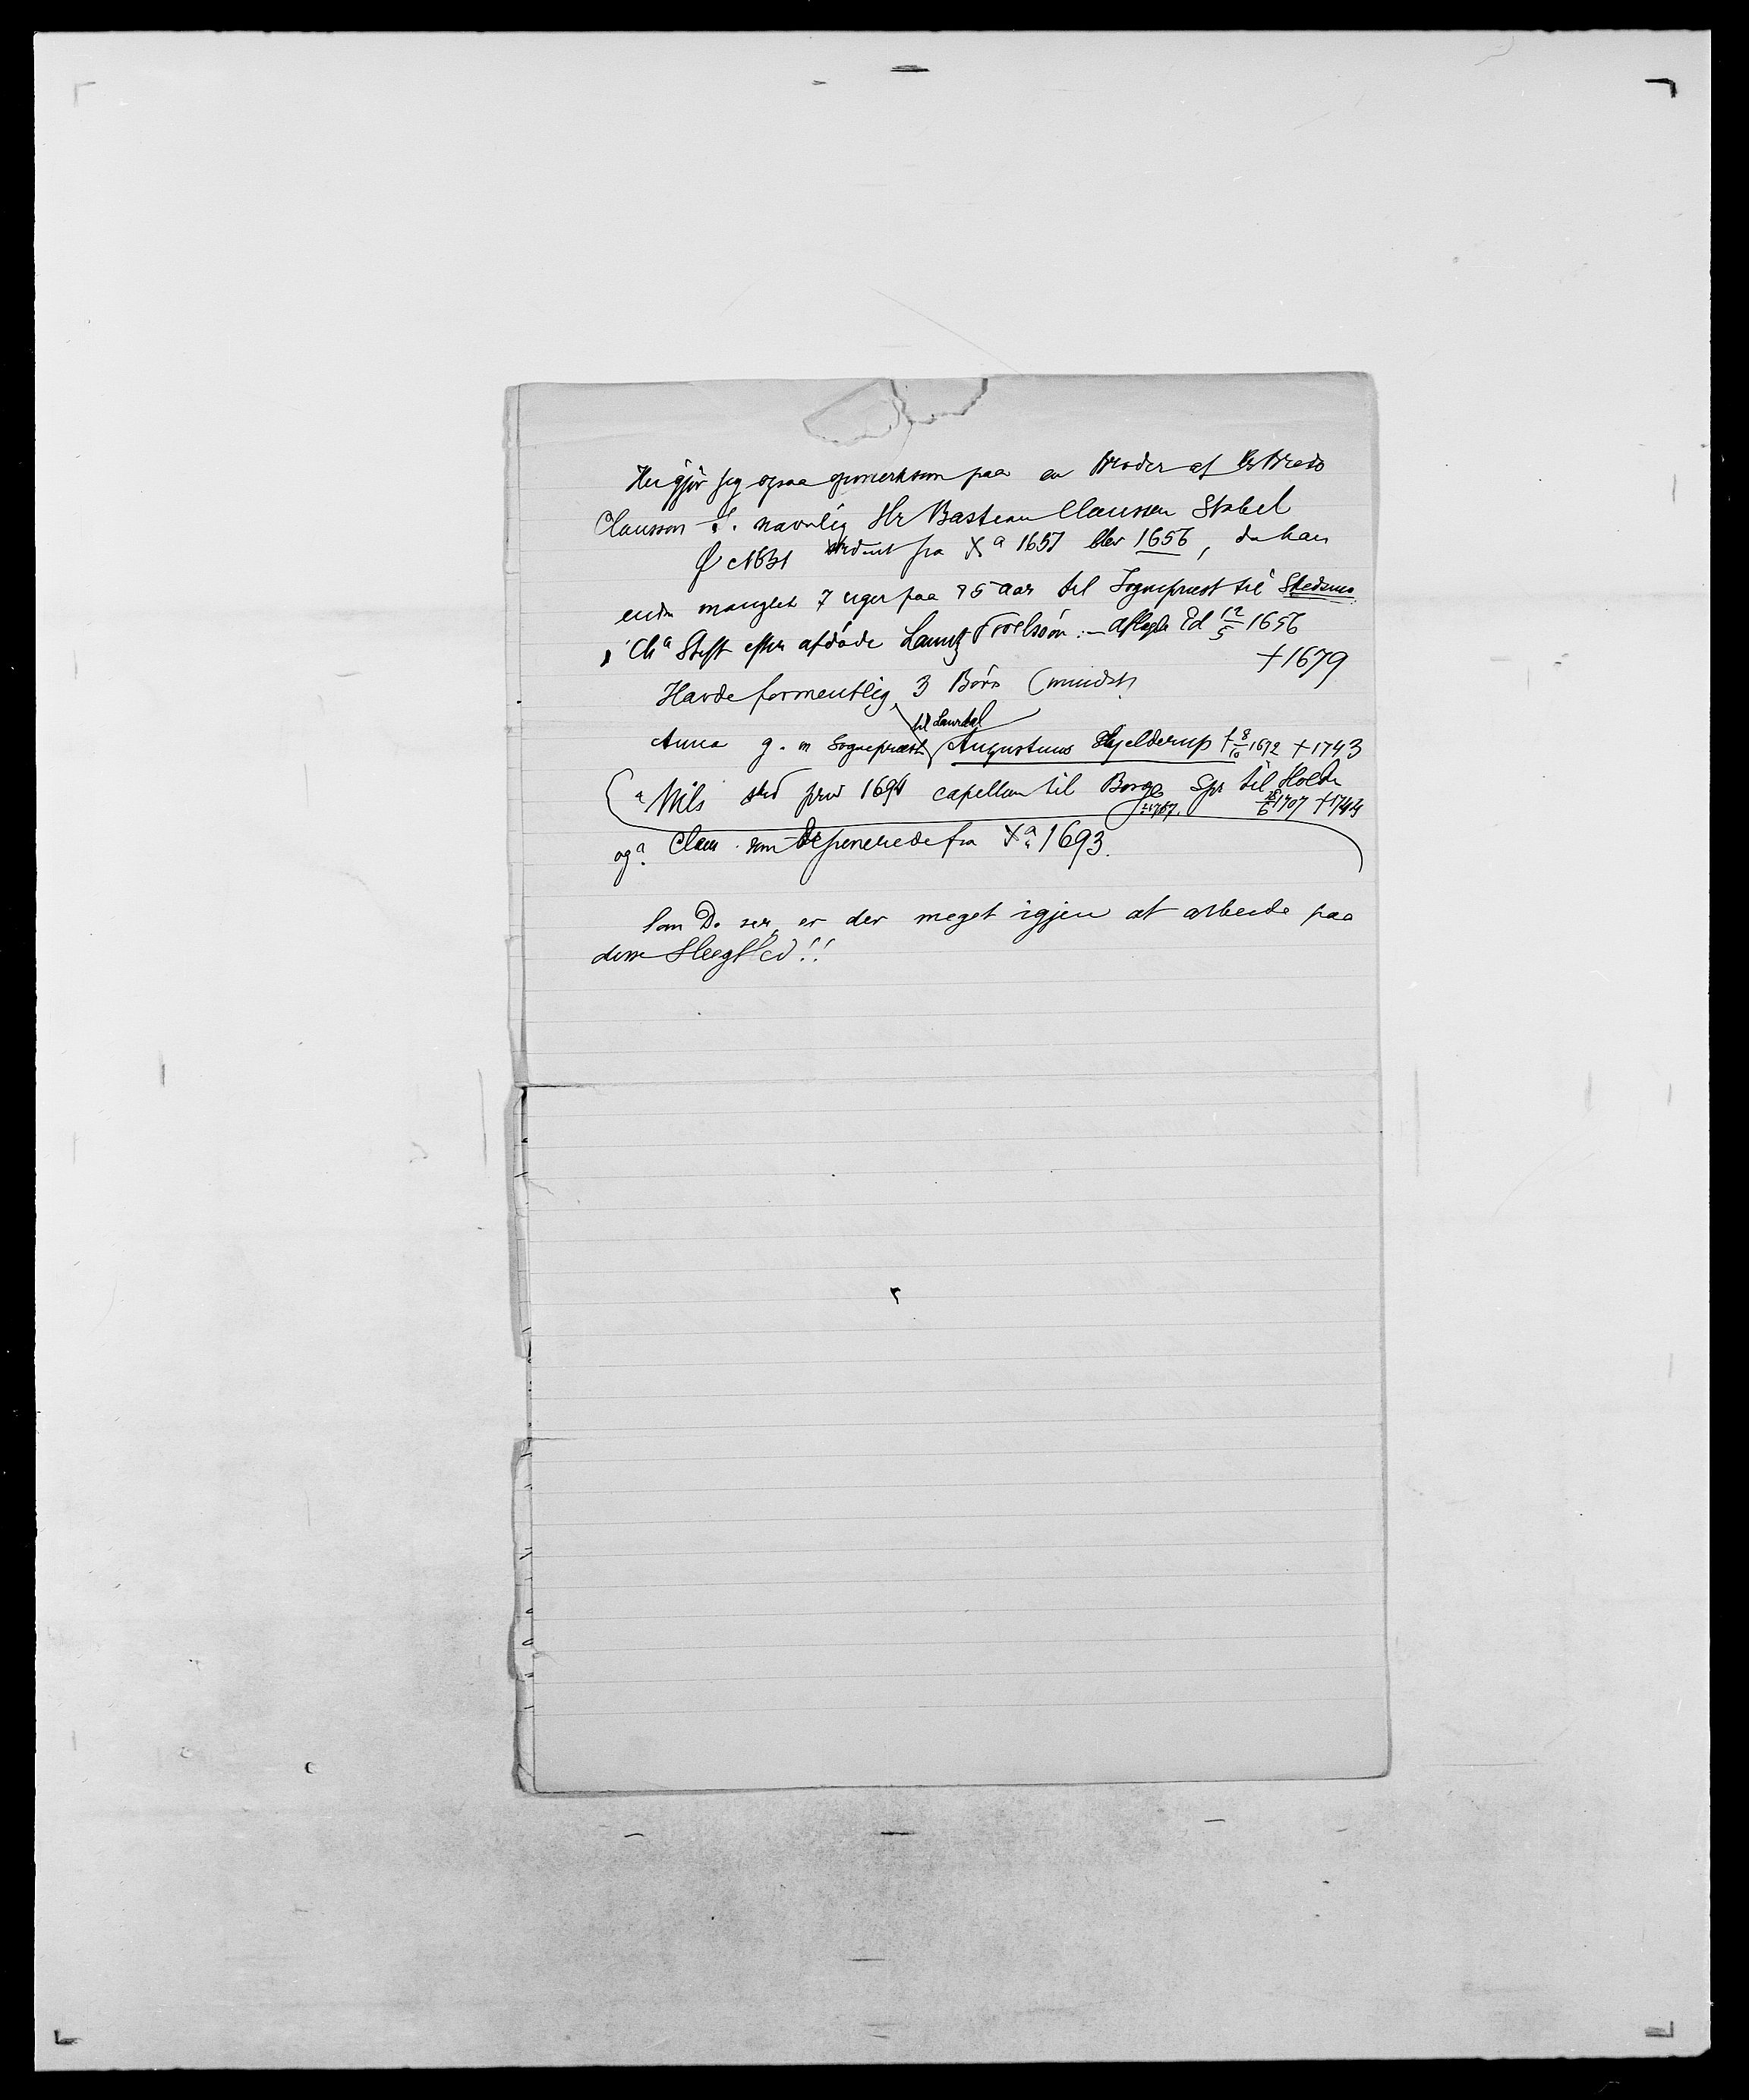 Her gjør jeg ogsaa opmerksom paa en Broder af Hr Bredo
Clausson S. navnlig Hr Bastian Claussen Stabel
1631 Student fra Xa 1651 blev 1656, da han
endn manglet 7 uger paa 25 Aar til Sogneprest til Skedsmo
i Cha Stift efter afdøde Lauritz Troelsøn :- aflagde Ed 12/5 1656
†1679
Havde formentlig 3 Børn (mindst)
til Laurdal
Anna g. m Sogneprest Augustinus Hjelderup † 8/10 1672 †1743
a Nils stud priv 1694 capellan til Borge Spr til Holden
1707. 18/6 1707 †1744
og a. Claus som deponerede fra Xa 1693.
Som De ser, er der meget igjen at arbeide paa
denne Slegt Ed!!